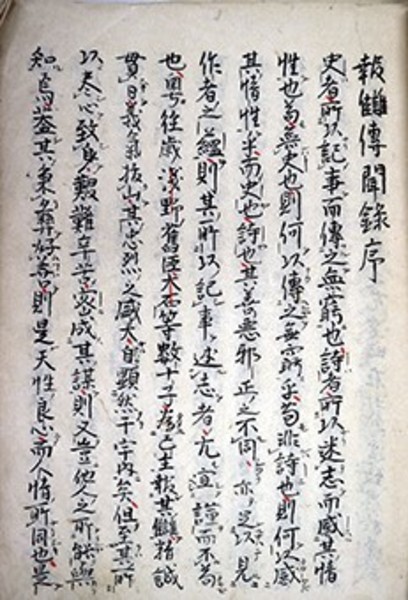 報讎傳聞錄序
史者所以記事而傳之無窮也詩者所以述志而感其情
性也苟無史也則何以傳之無窮乎苟非詩也則何以感
其情性乎而史也詩也其善惡邪正之不同亦足以見
作者之蘊則其所以記事述志者尤宜謹而不苟
也粤往歲淺野舊臣大石等數十子為亡主報其讎精誠
貫日義氣拔山其忠烈之盛大自顯然于宇内矣但至其所
以尽心致身艱難辛苦密成其謀則又豈他人之所能與
知焉蓋其秉彝好善則是天性良心而人情所同也是